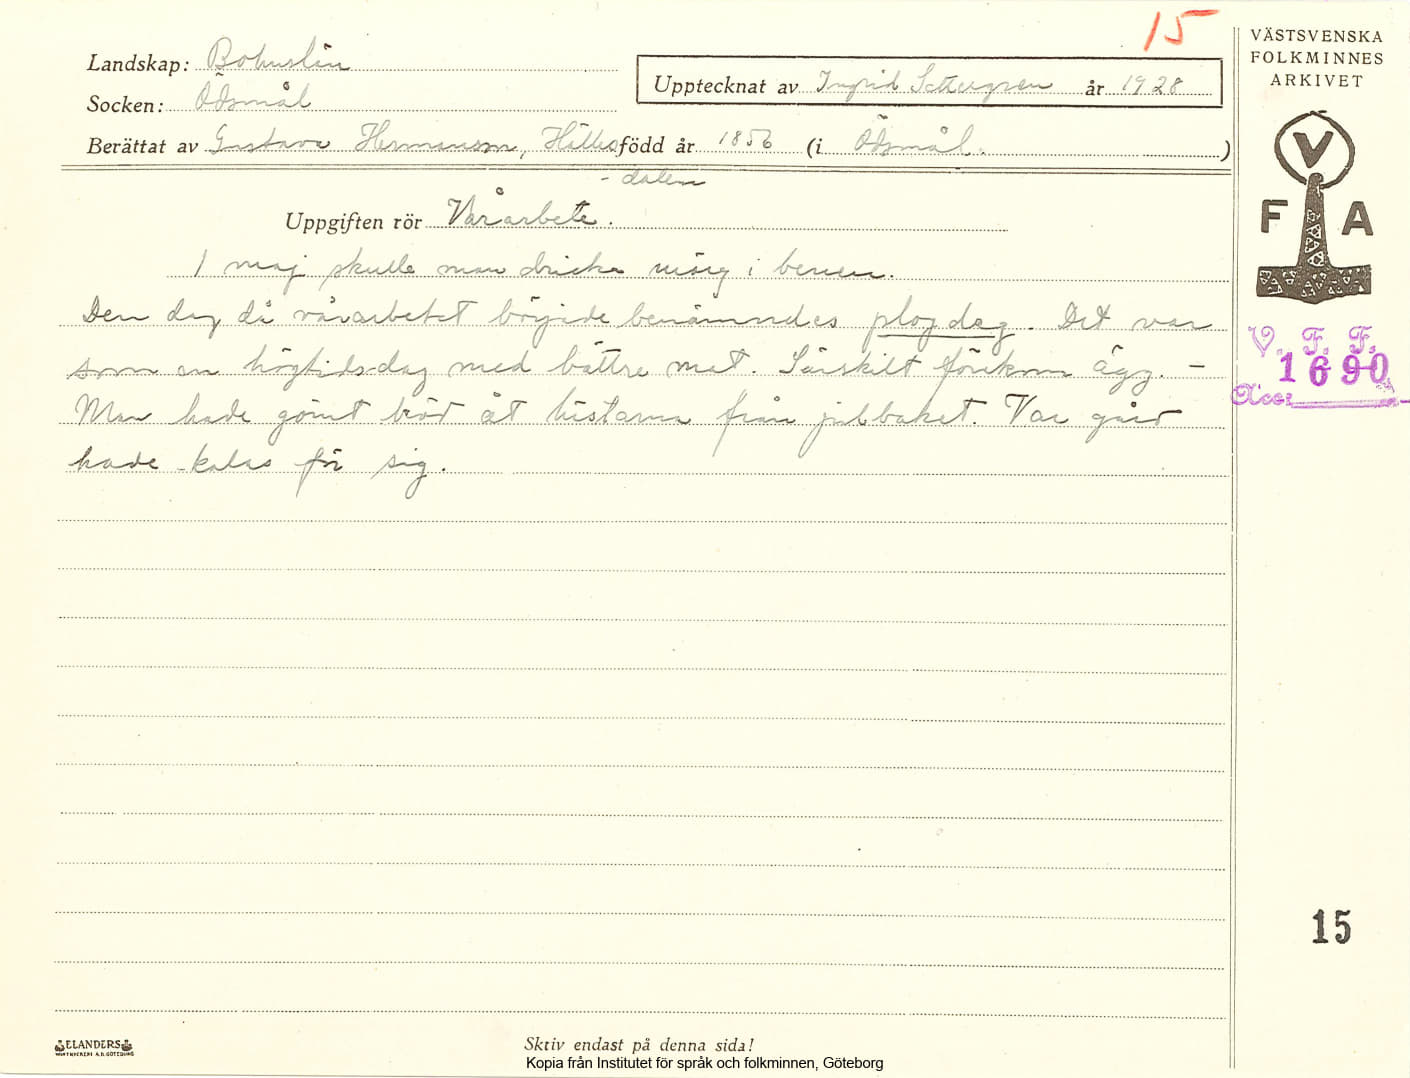 15
VÄSTSVENSKA
FOLKMINNES
ARKIVET
Landskap: Bohuslän
Upptecknat av Ingrid Settergren år 1928
Socken: Ödsmål
Berättat av Gustava Hermanson, Hälles- född år 1856 (i Ödsmål.)
-dalen
Uppgiften rör Vårarbete.
I maj skulle man dricka märg i benen.
Den dag då vårarbetet började benämndes plogdag. Det var
som en högtidsdag med bättre mat. Särskilt förekom ägg. –
Man hade gömt bröd åt hästarna från julbaket. Var gård
hade kalas för sig.
V
F A
V. F. F.
1690
Acc:
15
ELANDERS
Skriv endast på denna sida!
Kopia från Institutet för språk och folkminnen, Göteborg